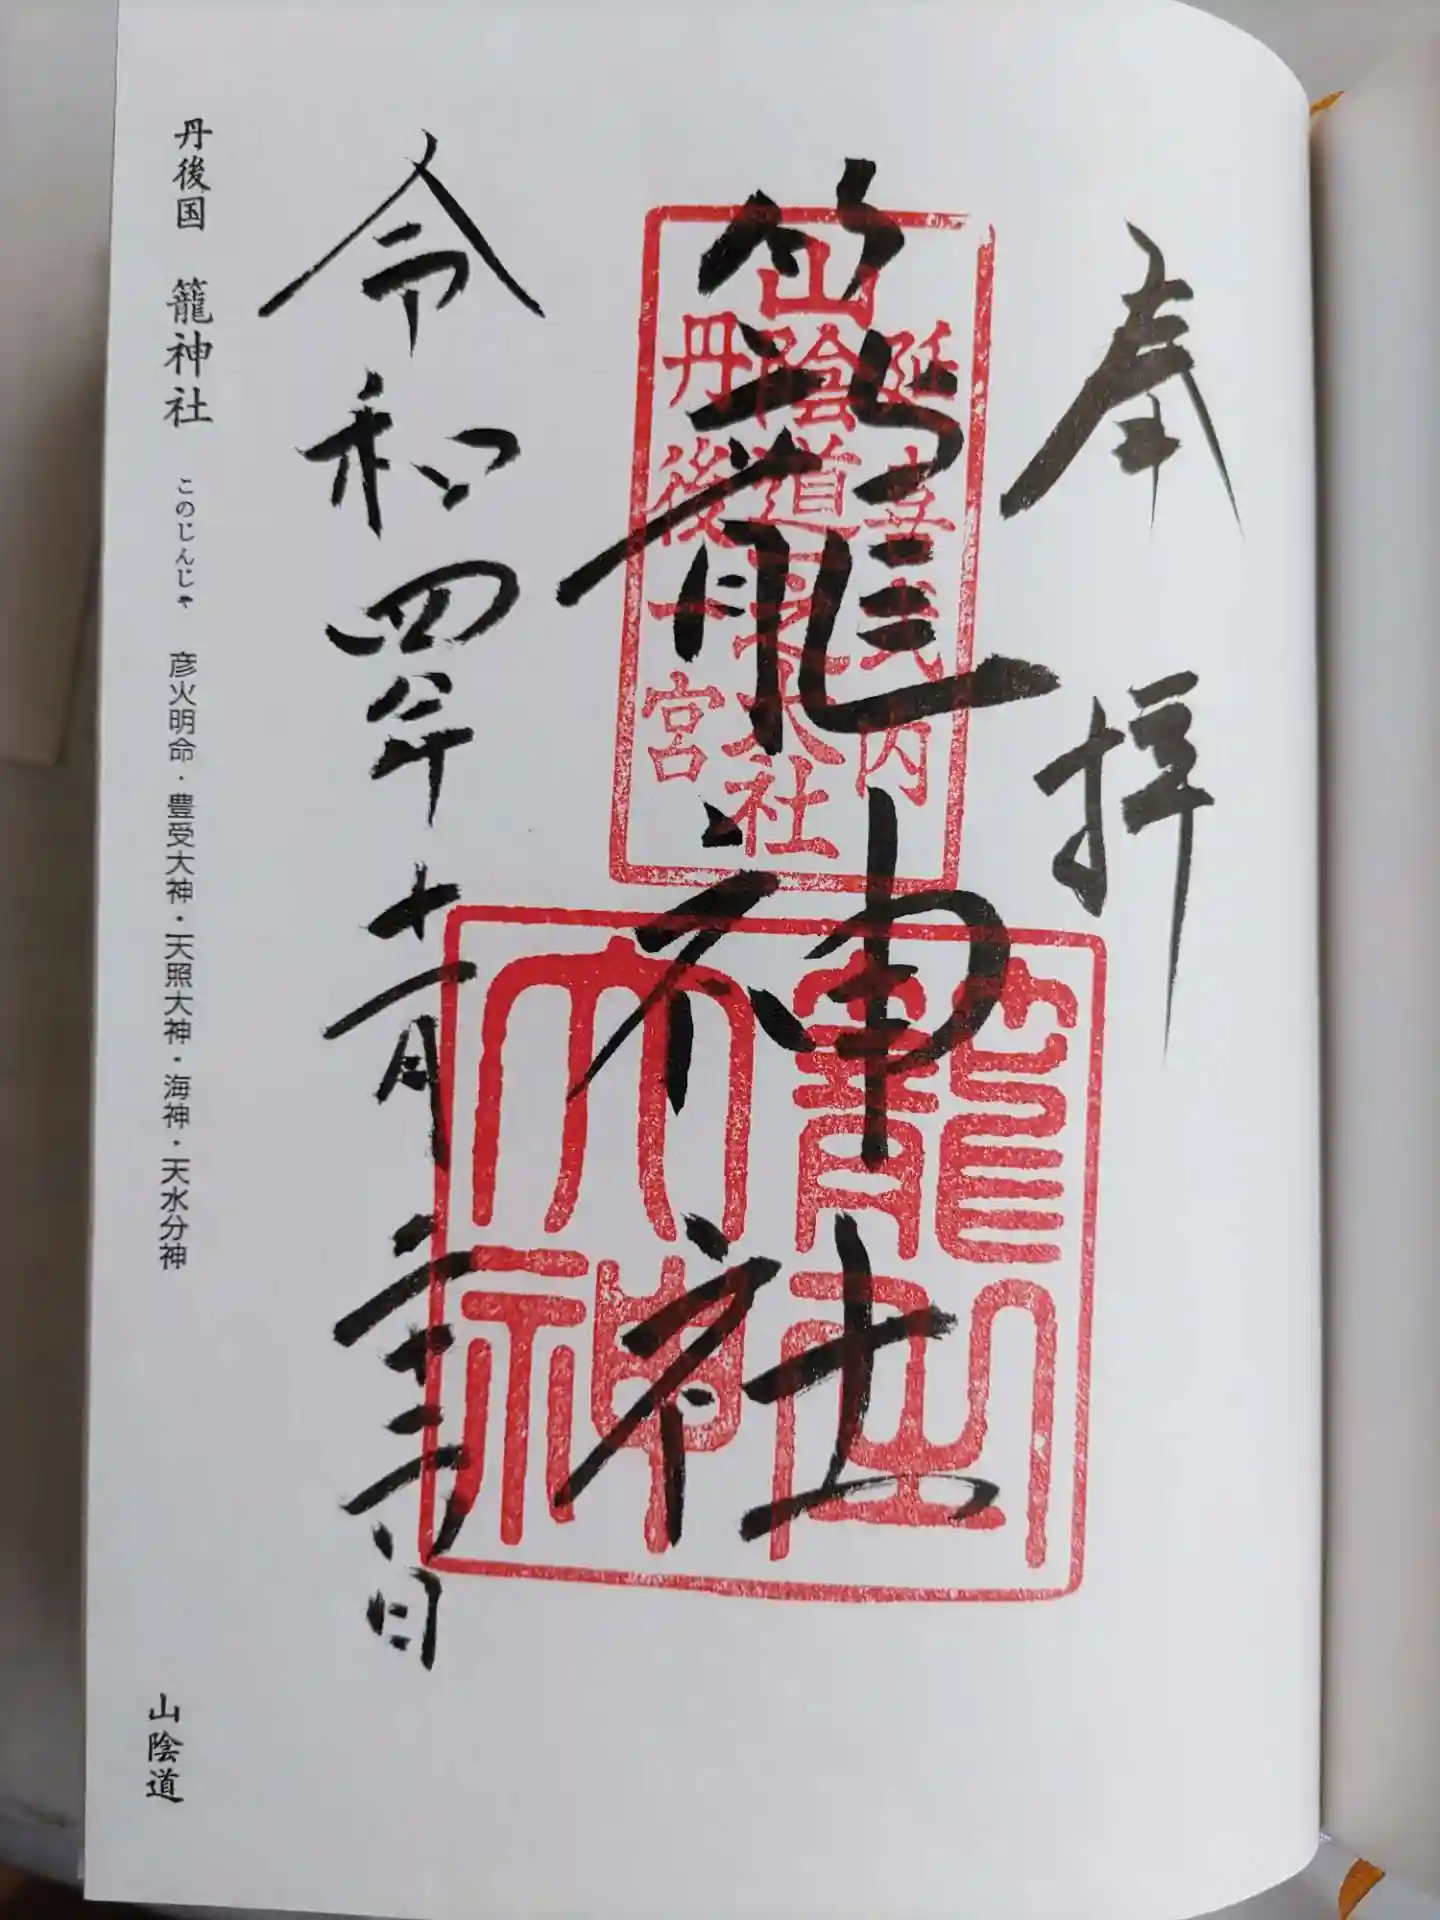 奉拝
籠神社
延喜式内
山陰道一之大社
丹後一宮
令和四年十一月二十六日
丹後国 籠神社 このじんじゃ 彦火明命・豊受大神・天照大神・海神・天水分神
山陰道